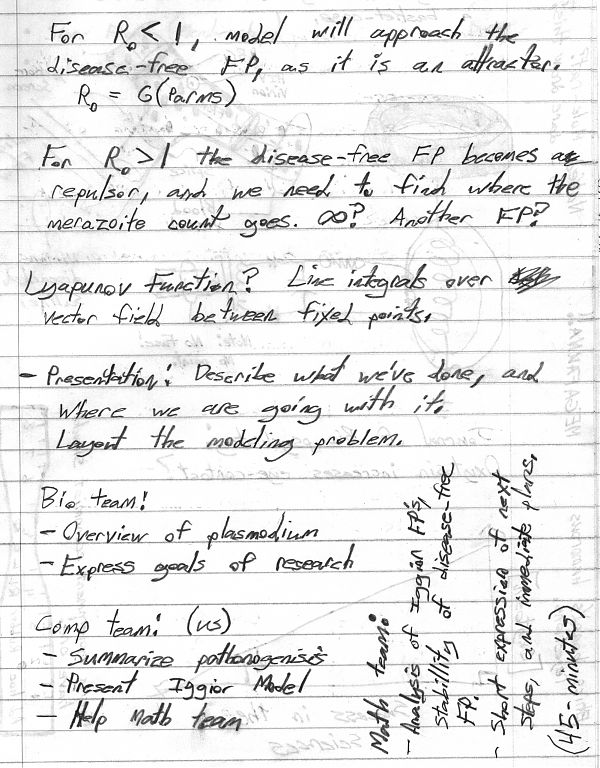 For R₀ < 1, model will approach the
disease-free FP, as it is an attractor.
R₀ = G(Parms)
For R₀ > 1 the disease-free FP becomes a
repulsor, and we need to find where the
merazoite count goes. ∞? Another FP?
Lyapunov Function? Line integrals over
vector field between fixed points.
- Presentation: Describe what we've done, and
where we are going with it.
Layout the modeling problem.
Bio team:
- Overview of plasmodium
- Express goals of research
Comp team: (us)
- Summarize pathonogenisis
- Present Iggior Model
- Help Math team
Math team:
- Analysis of Iggior FP's,
Stability of disease-free
FP.
- Short expression of next
steps, and immediate plans.
(45-minutes)